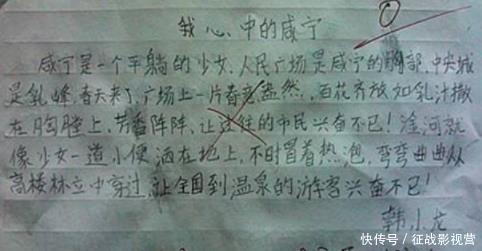 我心中的咸宁
咸宁是一个平躺的少女,人民广场是咸宁的胸部,中央城
是乳峰,春天来了,广场上一片春意盎然,百花齐放如乳汁撒
在胸膛上,芳香阵阵,让过往的市民兴奋不已!淦河就
像少女一道小便洒在地上,不时冒着热泡,弯弯曲曲从
高楼林立中穿过,让全国到温泉的游客兴奋不已!
韩小龙
快传号/征战影视营